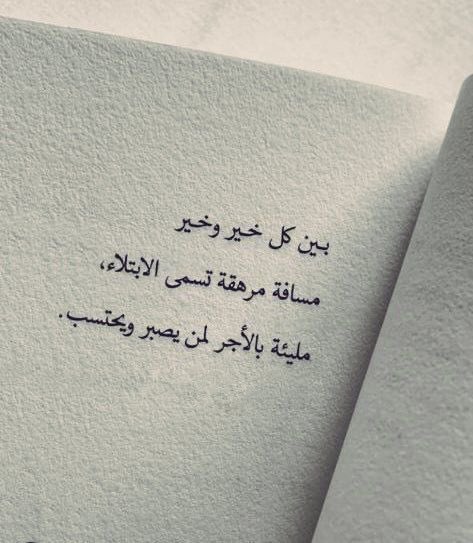 بين كل خير وخير
مسافة مرهقة تسمى الابتلاء،
مليئة بالأجر لمن يصبر ويحتسب.